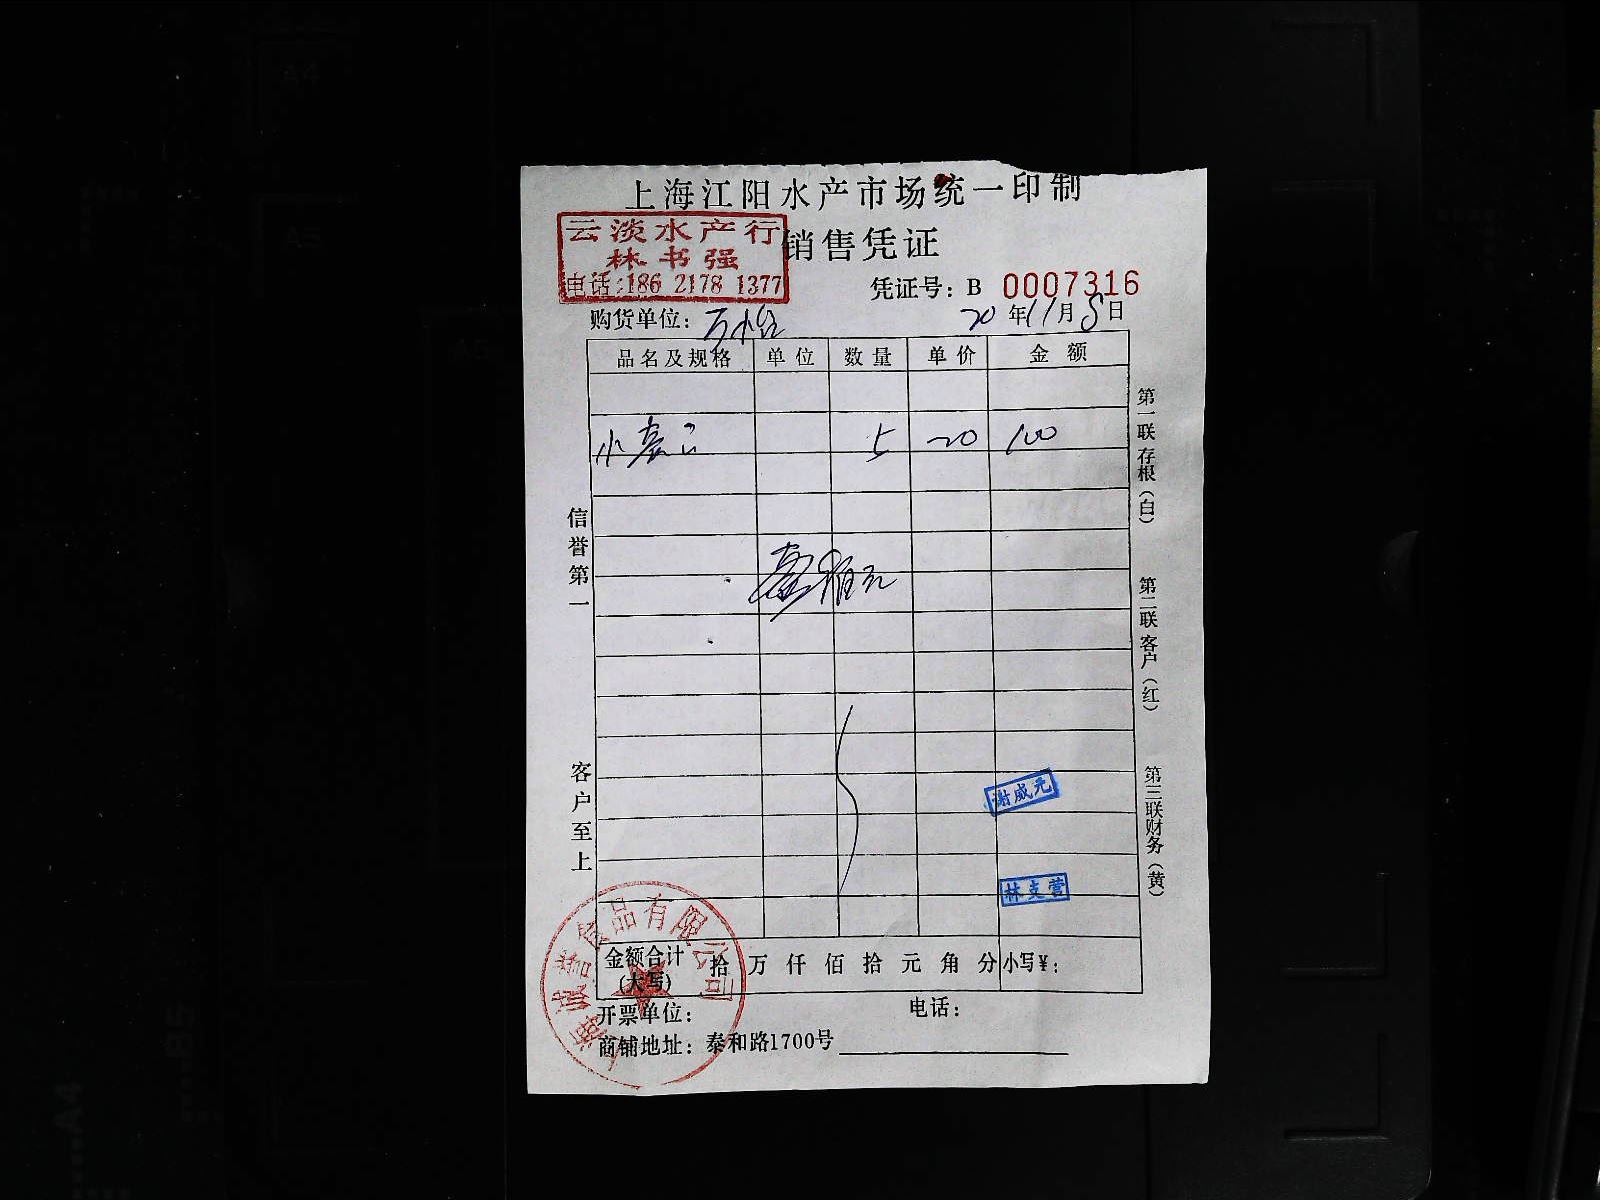 上海江阳水产市场统一印制
云淡水产行
林书强
电话:186 2178 1377
销售凭证
凭证号：B 0007316
购货单位：
20年11月8日
品名及规格 单位 数量 单价 金额
小 5 20 100
信誉第一
客户至上
第一联存根（白）
第二联客户（红）
第三联财务（黄）
谢咸元
林支营
金额合计（大写） 拾万仟佰拾元角分 小写¥：
海诚誉食品有限公司
开票单位： 电话：
商铺地址：泰和路1700号